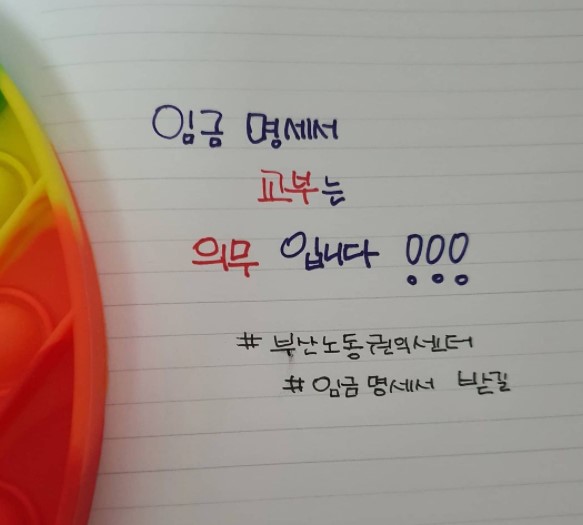 임금 명세서
교부는
의무 입니다 !!!
# 부산노동권익센터
# 임금 명세서 받길